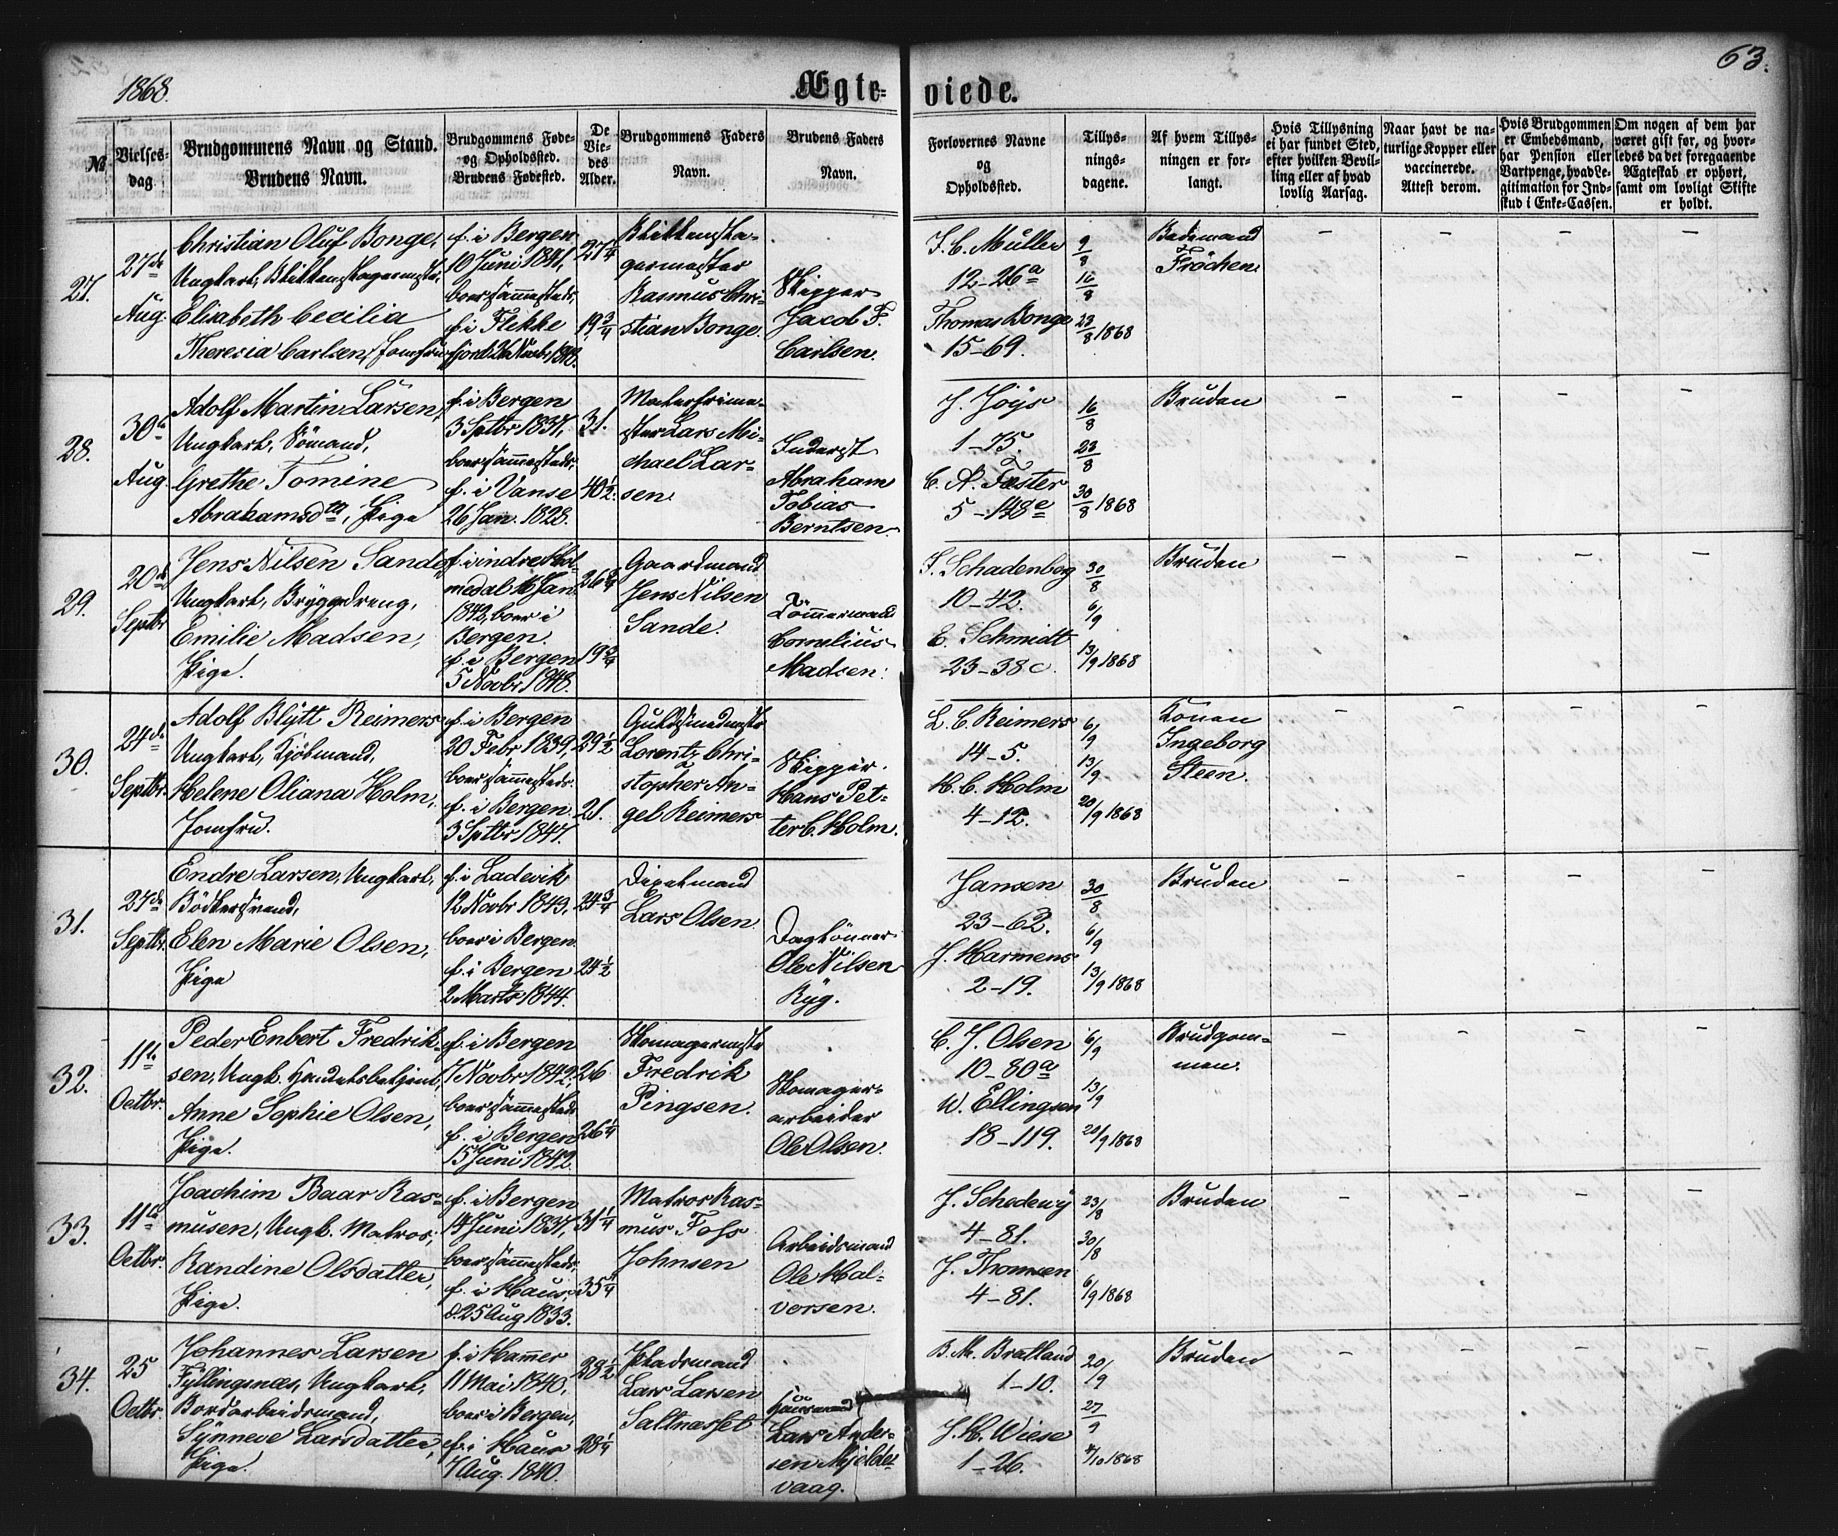 1868.
Ægte-
viede.
63.
No
Vielses-
dag.
Brudgommens Navn og Stand.
Brudens Navn.
Brudgommens Føde-
og Opholdssted.
Brudens Fødested.
De
Vie-
des
Alder.
Brudgommens Faders
Navn.
Brudens Faders
Navn.
Forlovernes Navne
og
Opholdssted.
Tillys-
nings-
dagene.
Af hvem Tillys-
ningen er for-
langt.
Hvis Tillysning
ei har fundet Sted,
efter hvilken Bevil-
ling eller af hvad
lovlig Aarsag.
Naar havt de na-
turlige Kopper eller
vaccinerede.
Attest derom.
Hvis Brudgommen
er Embedsmand,
har Pension eller
Vartpenge, hvad Le-
gitimation for Ind-
skud i Enke-Cassen.
Om nogen af dem har
været gift før, og hvor-
ledes da det foregaaende
Ægteskab er ophørt,
samt om lovligt Skifte
er holdt.
27.
27de
Aug.
Christian Oluf Bonge,
Ungkarl, Blikkenslagermester,
Elisabeth Cecilia
Theresia Carlsen, Jomfru
f. i Bergen
10 Juni 1841,
boer sammesteds,
f. i Flekke
fjord 26 Novbr. 1848.
27 1/4
19 3/4
Blikkensla-
germester
Rasmus Chri-
stian Bonge.
Skipper
Jacob F.
Carlsen.
J. C. Müller
12-26a
Thomas Bonge
15-69.
9/8
16/8
23/8 1868
Bedemand
Fröchen
28.
30te
Aug.
Adolf Martin Larsen,
Ungkarl, Sömand,
Grethe Tomine
Abrahamsdtr, Pige
f. i Bergen
3 Sptbr 1837,
boer sammesteds,
f. i Vanse
26 Jan. 1828.
31.
40 1/2.
ster Lars Mi-
chael Lar-
sen.
Inderst
Abraham
Tobias
Berntsen.
J. Joys
1-75.
C. A. Fæster
5-148e
16/8
23/8
30/8 1868
Bruden
29.
20de
Septbr
Jens Nilsen Sande,
Ungkarl, Bryggedreng,
Emilie Madsen,
Pige.
f. i indre Hol-
medal 16 Jan.
1842, boer i
Bergen,
f. i Bergen
5 Novbr 1848.
26 3/4
19 3/4
Gaardmand
Jens Nilsen
Sande.
Tömmermand
Cornelius
Madsen.
J. Schadenborg
10-42.
E. Schmidt
23-38c
30/8
6/9
13/9 1868
Bruden
30.
24de
Septbr.
Adolf Blytt Reimers
Ungkarl, Kjöbmand,
Helene Oliana Holm,
Jomfru.
f. i Bergen
20 Febr 1839,
boer sammesteds.
f. i Bergen
3 Sptbr 1847.
29 1/2
21.
Guldsmedmester
Lorentz Chri-
stopher An-
gel Reimers
Skipper
Hans Pet-
ter C. Holm.
L. C. Reimers
14-5.
H. C. Holm
4-12.
6/9
13/9
20/9 1868
Konen
Ingeborg
Steen.
31.
27de
Septbr.
Endre Larsen, Ungkarl,
Bödkersvend,
Elen Marie Olsen,
Pige
f. i Ladevik
12 Novbr 1843,
boer i Bergen.
f. i Bergen
2 Marts 1844.
24 3/4
24 1/2
Lars Olsen
Daglönner
Ole Nilsen
Ryg.
Jansen
23-62.
J. Harmens
2-19.
30/8
6/9
13/9 1868
Bruden
32.
11te
Octbr.
Peder Enbert Fredrik-
sen, Ungk. Handelsbetjent,
Anne Sophie Olsen,
Pige.
f. i Bergen
7 Novbr 1842,
boer sammesteds
f. i Bergen
15 Juni 1842.
26
26 1/4
Skomagermester
Fredrik
Pingsen.
Skomager-
arbeider
Ole Olsen.
C. J. Olsen
10-80a
W. Ellingsen
18-119.
6/9
13/9
20/9 1868
Brudgom-
men.
33.
11te
Octbr.
Joachim Baar Ras-
musen, Ungk. Matros,
Randine Olsdatter,
Pige.
f. i Bergen
14 Juni 1837,
boer sammesteds,
f. i Haus,
d. 25 Aug 1833.
31 1/4
35 1/4
Matros Ras-
mus Fohs
Johnsen
Arbeidsmand
Ole Hal-
vorsen.
J. Schedewy
4-81.
J. Thomsen
4-81.
23/8
30/8
6/9 1868
Bruden
34.
25
Octbr.
Johannes Larsen
Fyllingsnæs, Ungkarl,
Bordarbeidsmand,
Synneve Larsdatter,
Pige.
f. i Hammer
11 Mai 1840,
boer i Bergen,
f. i Haus
7 Aug. 1840.
28 1/2
28 1/4
Pladsmand
Lars Larsen
Saltnæsset
Huusmand
Lars Ander-
sen Mjelde-
vaag.
B. M. Bratland
1-10.
J. H. Wiese
1-26.
20/9
27/9
4/10 1868
Bruden